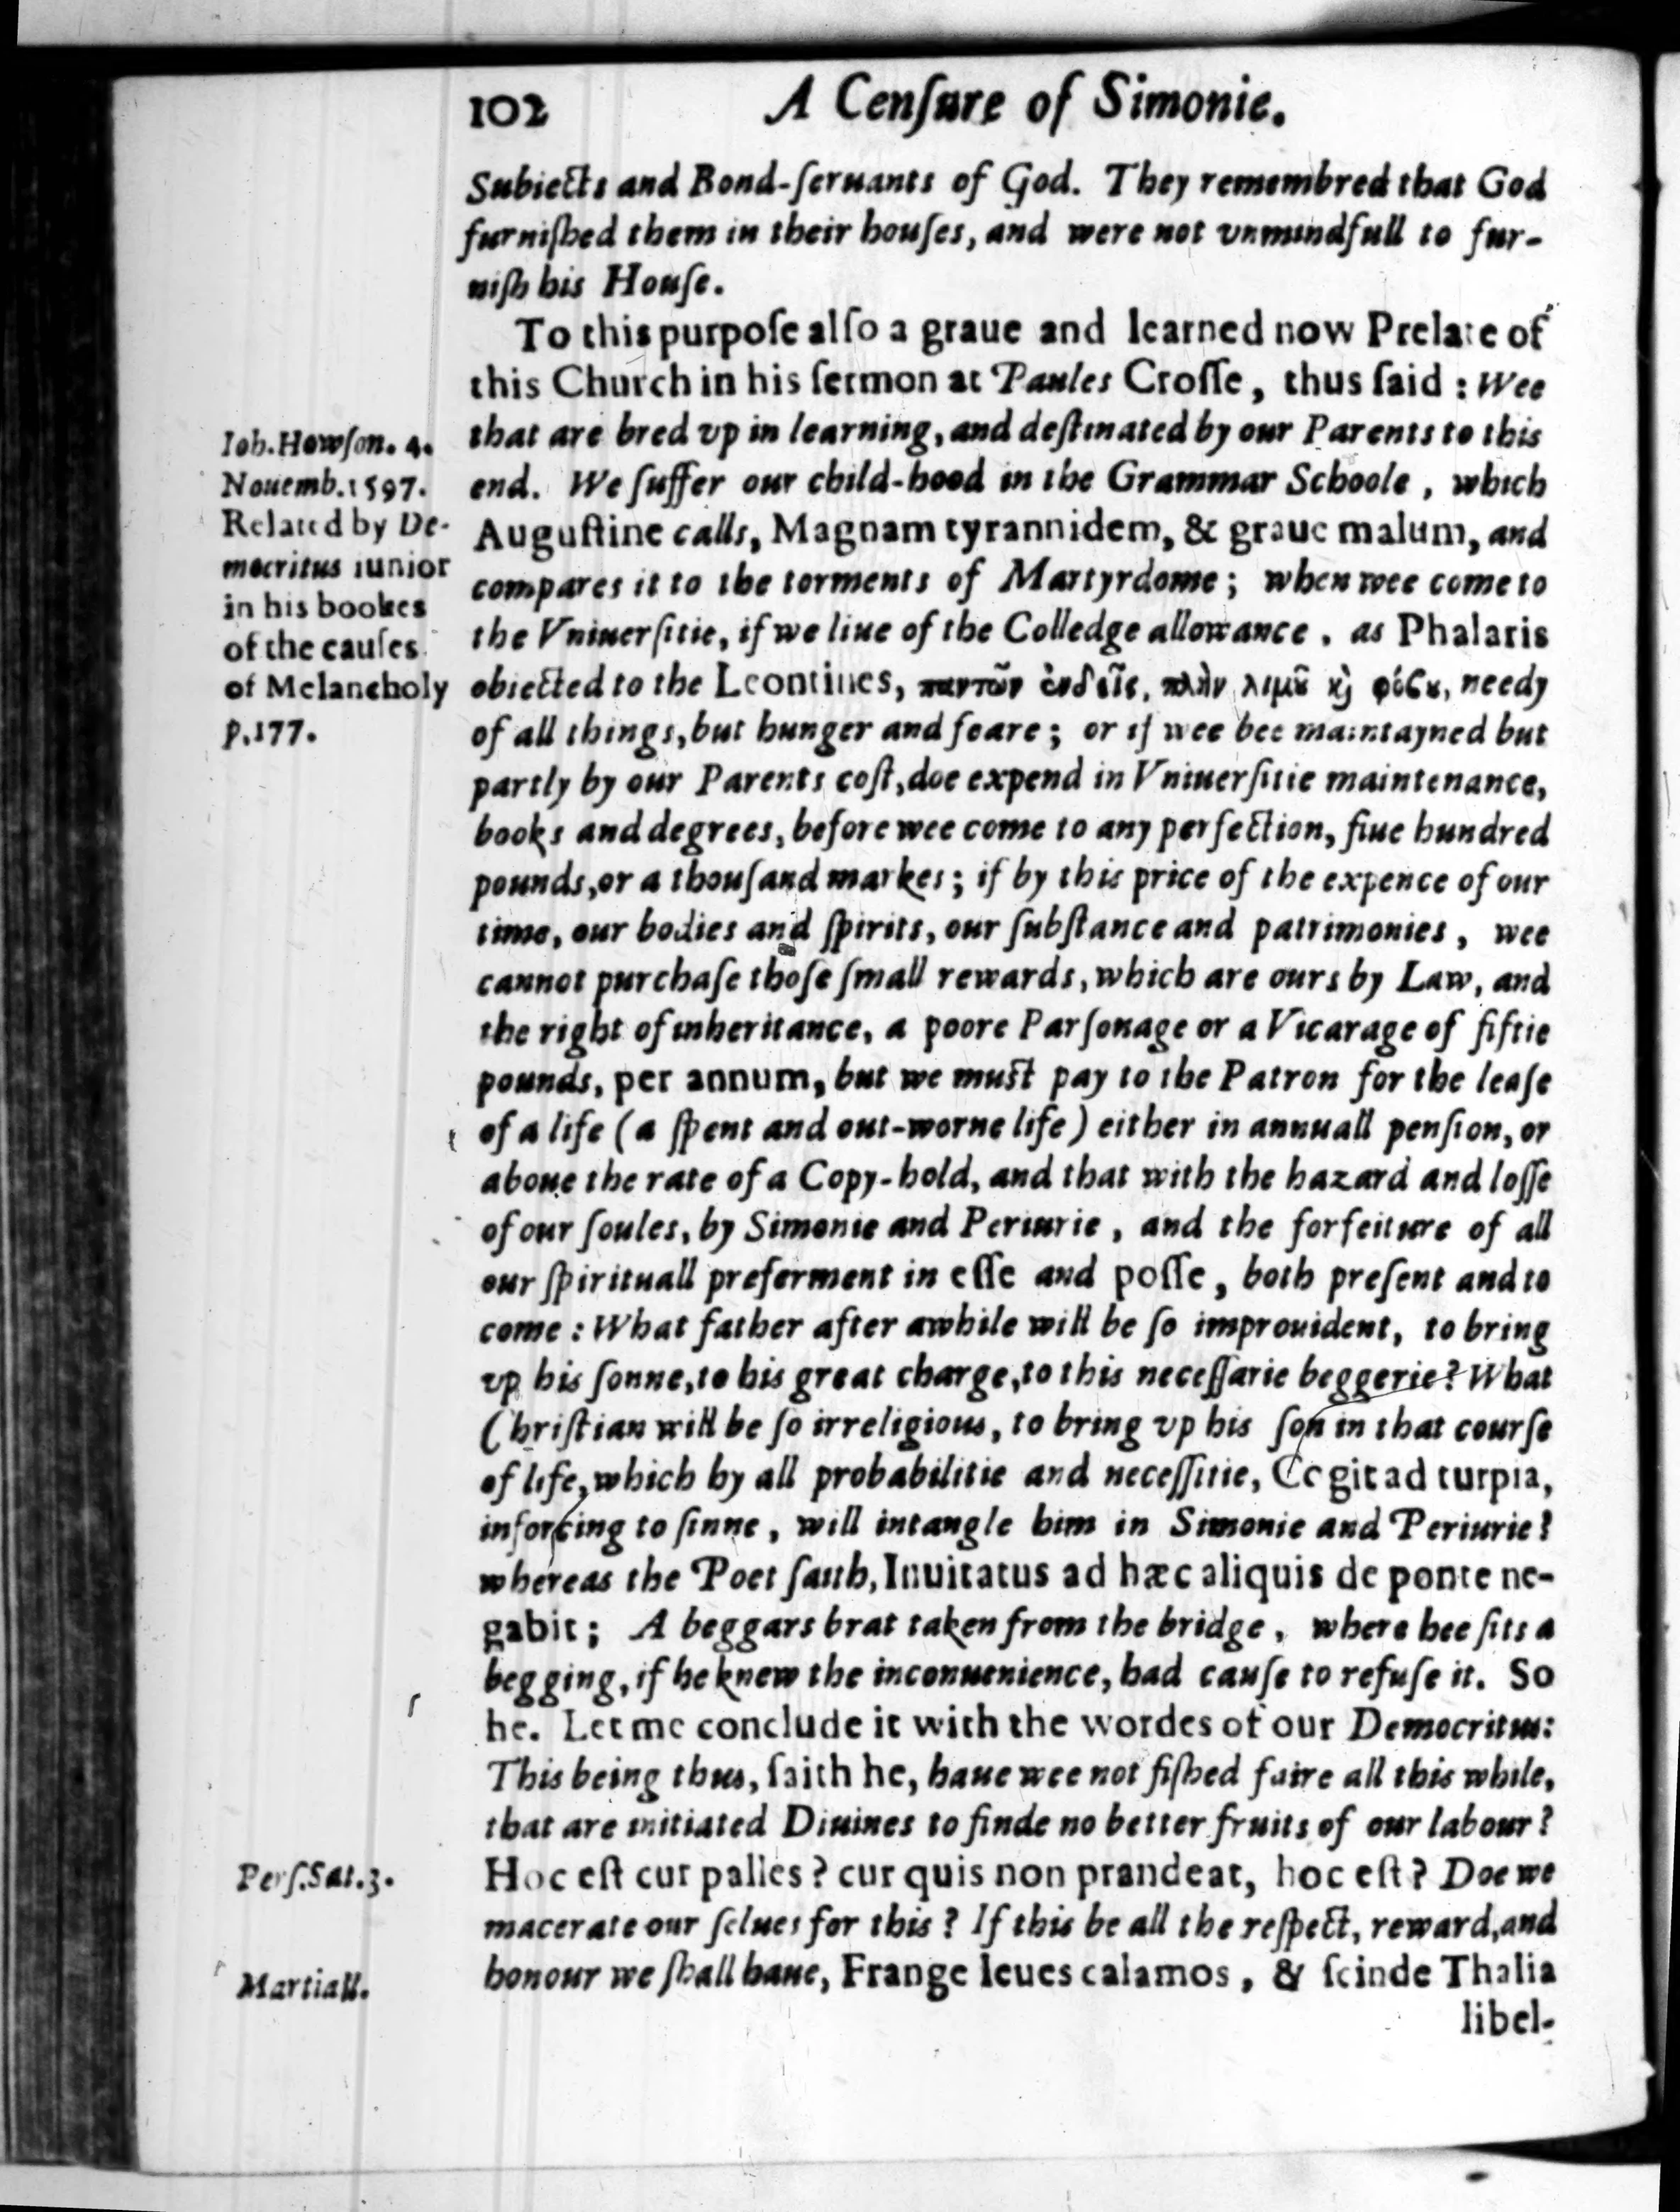 102 A Cenſure of Simonie.
Subiects and Bond-ſeruants of God. They remembred that God
furniſhed them in their houſes, and were not vnmindfull to fur-
niſh his Houſe.
To this purpoſe alſo a graue and learned now Prelate of
this Church in his ſermon at Paules Croſſe, thus ſaid : Wee
that are bred vp in learning, and deſtinated by our Parents to this
end. We ſuffer our child-hood in the Grammar Schoole, which
Auguſtine calls, Magnam tyrannidem, & graue malum, and
compares it to the torments of Martyrdome; when wee come to
the Vniuerſitie, if we liue of the Colledge allowance, as Phalaris
obiected to the Leontines, παντῶν ἐνδεῖς, πλὴν λιμοῦ καὶ φόβου, needy
of all things, but hunger and feare; or if wee bee maintayned but
partly by our Parents coſt, doe expend in Vniuerſitie maintenance,
books and degrees, before wee come to any perfection, fiue hundred
pounds, or a thouſand markes; if by this price of the expence of our
time, our bodies and ſpirits, our ſubſtance and patrimonies, wee
cannot purchaſe thoſe ſmall rewards, which are ours by Law, and
the right of inheritance, a poore Parſonage or a Vicarage of fiftie
pounds, per annum, but we muſt pay to the Patron for the leaſe
of a life (a ſpent and out-worne life) either in annuall penſion, or
aboue the rate of a Copy-hold, and that with the hazard and loſſe
of our ſoules, by Simonie and Periurie, and the forfeiture of all
our ſpirituall preferment in eſſe and poſſe, both preſent and to
come : What father after awhile will be ſo improuident, to bring
vp his ſonne, to his great charge, to this neceſſarie beggerie? What
Chriſtian will be ſo irreligious, to bring vp his ſon in that courſe
of life, which by all probabilitie and neceſſitie, Cogit ad turpia,
inforcing to ſinne, will intangle him in Simonie and Periurie?
whereas the Poet ſaith, Inuitatus ad hæc aliquis de ponte ne-
gabit; A beggars brat taken from the bridge, where hee ſits a
begging, if he knew the inconuenience, had cauſe to refuſe it. So
he. Let me conclude it with the wordes of our Democritus:
This being thus, ſaith he, haue wee not fiſhed faire all this while,
that are initiated Diuines to finde no better fruits of our labour?
Hoc eſt cur palles? cur quis non prandeat, hoc eſt? Doe we
macerate our ſelues for this? If this be all the reſpect, reward, and
honour we ſhall haue, Frange leues calamos, & ſcinde Thalia
libel-
Ioh. Howſon. 4.
Nouemb. 1597.
Related by De-
mocritus iunior
in his bookes
of the cauſes
of Melancholy
p. 177.
Perſ. Sat. 3.
Martiall.